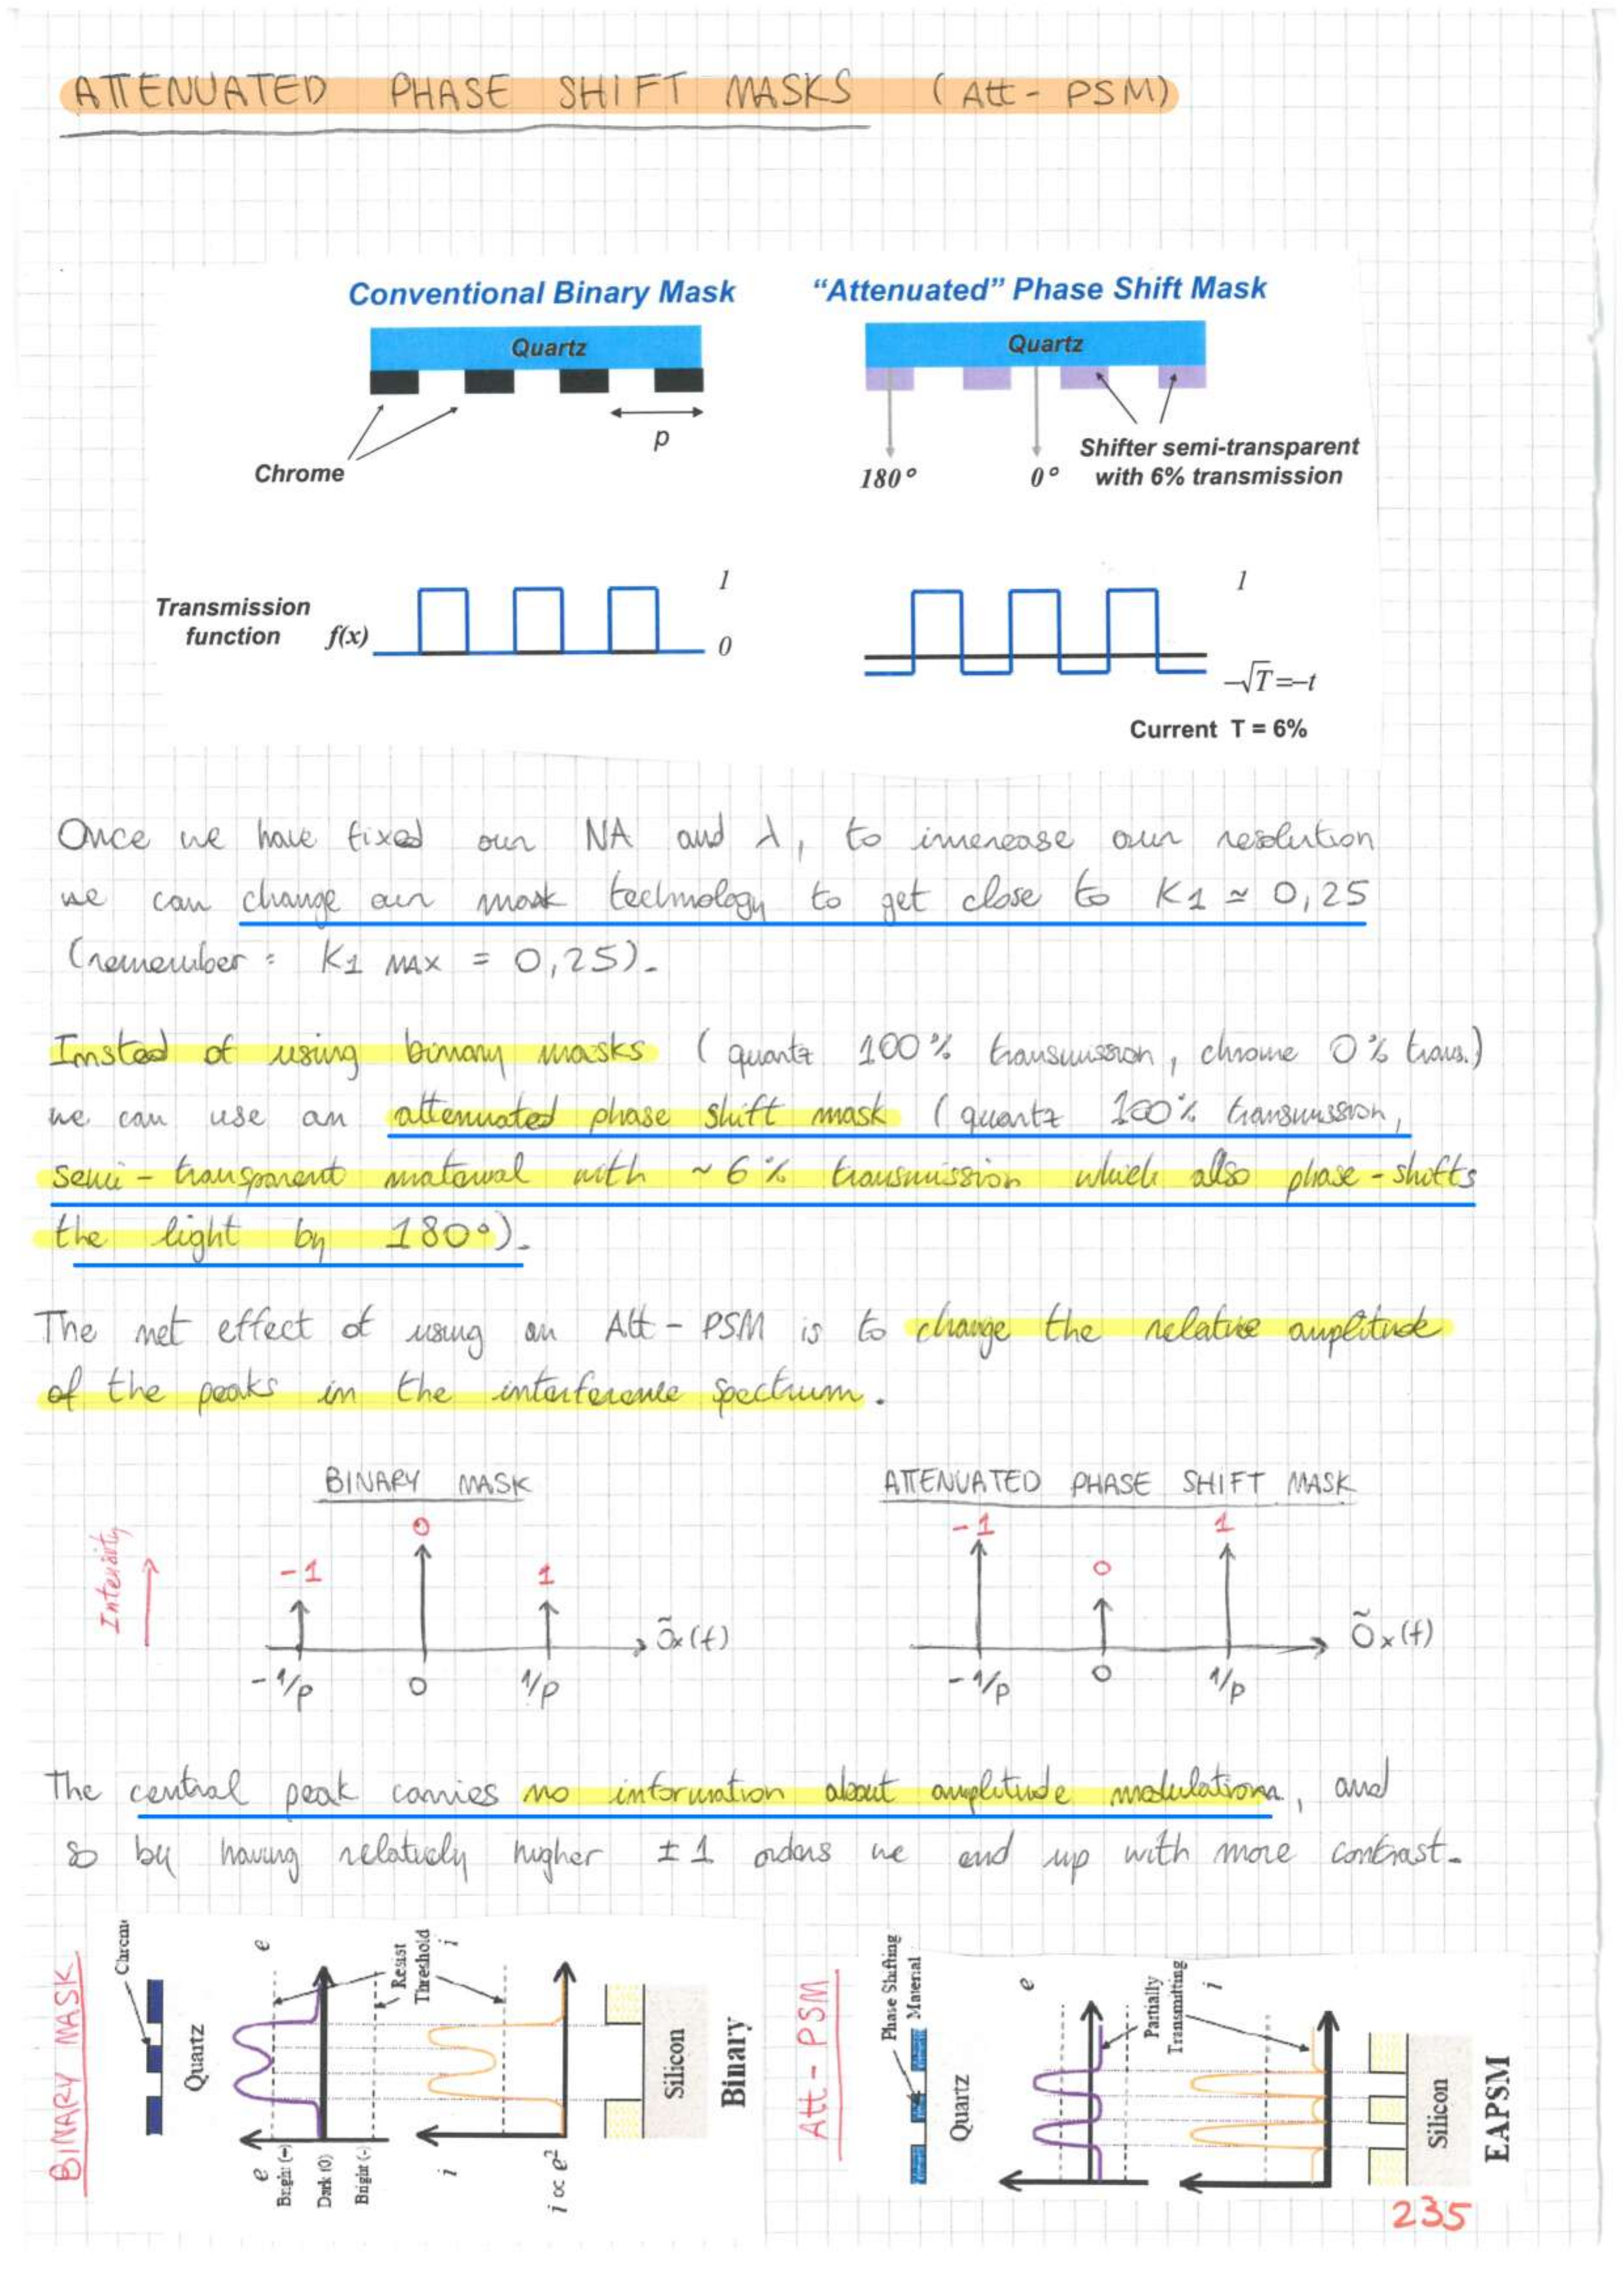 ATTENUATED PHASE SHIFT MASKS (Att - PSM)
Conventional Binary Mask
"Attenuated" Phase Shift Mask
Quartz
Quartz
p
Chrome
180°
0°
Shifter semi-transparent
with 6% transmission
Transmission
function f(x)
1
0
1
-√T=-t
Current T = 6%
Once we have fixed our NA and λ, to increase our resolution
we can change our mask technology to get close to K1 ≃ 0,25
(remember : K1 MAX = 0,25).
Instead of using binary masks ( quartz 100% transmission, chrome 0% trans.)
we can use an attenuated phase shift mask ( quartz 100% transmission,
semi - transparent material with ~ 6% transmission which also phase - shifts
the light by 180°).
The net effect of using an Att - PSM is to change the relative amplitude
of the peaks in the interference spectrum.
BINARY MASK
ATTENUATED PHASE SHIFT MASK
Intensity
-1
0
1
Õx(f)
-1/p
0
1/p
-1
0
1
Õx(f)
-1/p
0
1/p
The central peak carries no information about amplitude modulation, and
so by having relatively higher ±1 orders we end up with more contrast.
BINARY MASK
Chrome
Quartz
e
e
Bright (+)
Dark (0)
Bright (-)
Resist
Threshold
i
i
i ∝ e²
Silicon
Binary
Att - PSM
Phase Shifting
Material
Quartz
e
Partially
Transmitting
i
Silicon
EAPSM
235